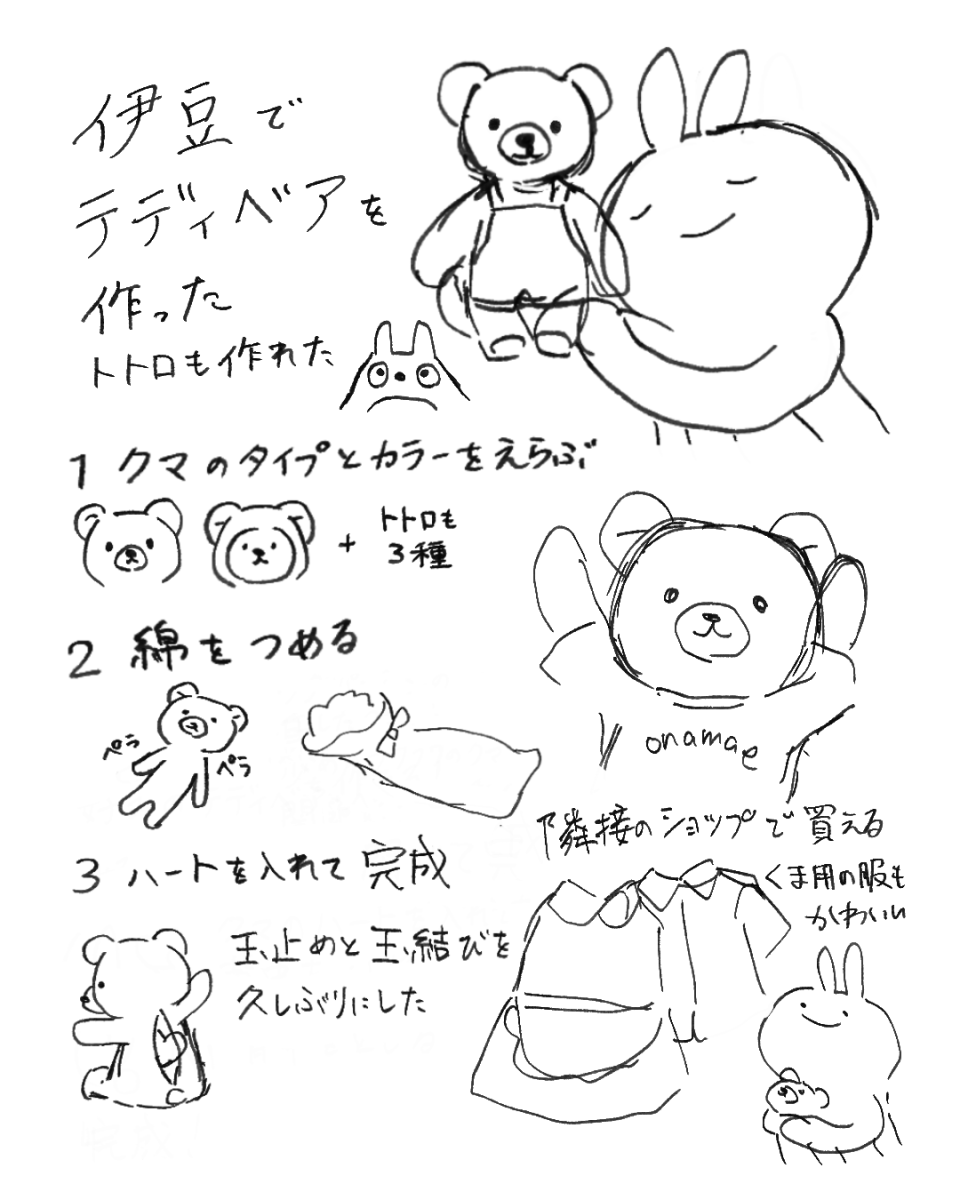 伊豆で
テディベアを
作った
トトロも作れた
1 クマのタイプとカラーをえらぶ
+ トトロも
3種
2 綿をつめる
ペラ
ペラ
onamae
3 ハートを入れて完成
玉止めと玉結びを
久しぶりにした
隣接のショップで買える
くま用の服も
かわいい